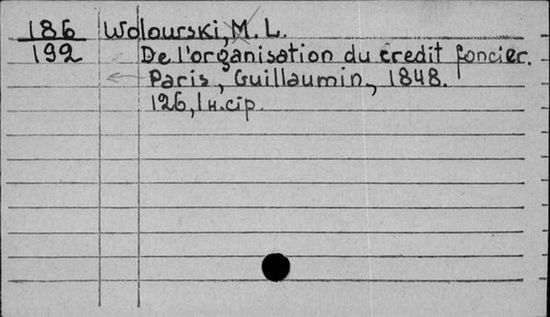 186 Wolourski, M. L.
192 De l'organisation du credit foncier.
Paris, Guillaumin, 1848.
126, 1 н.стр.